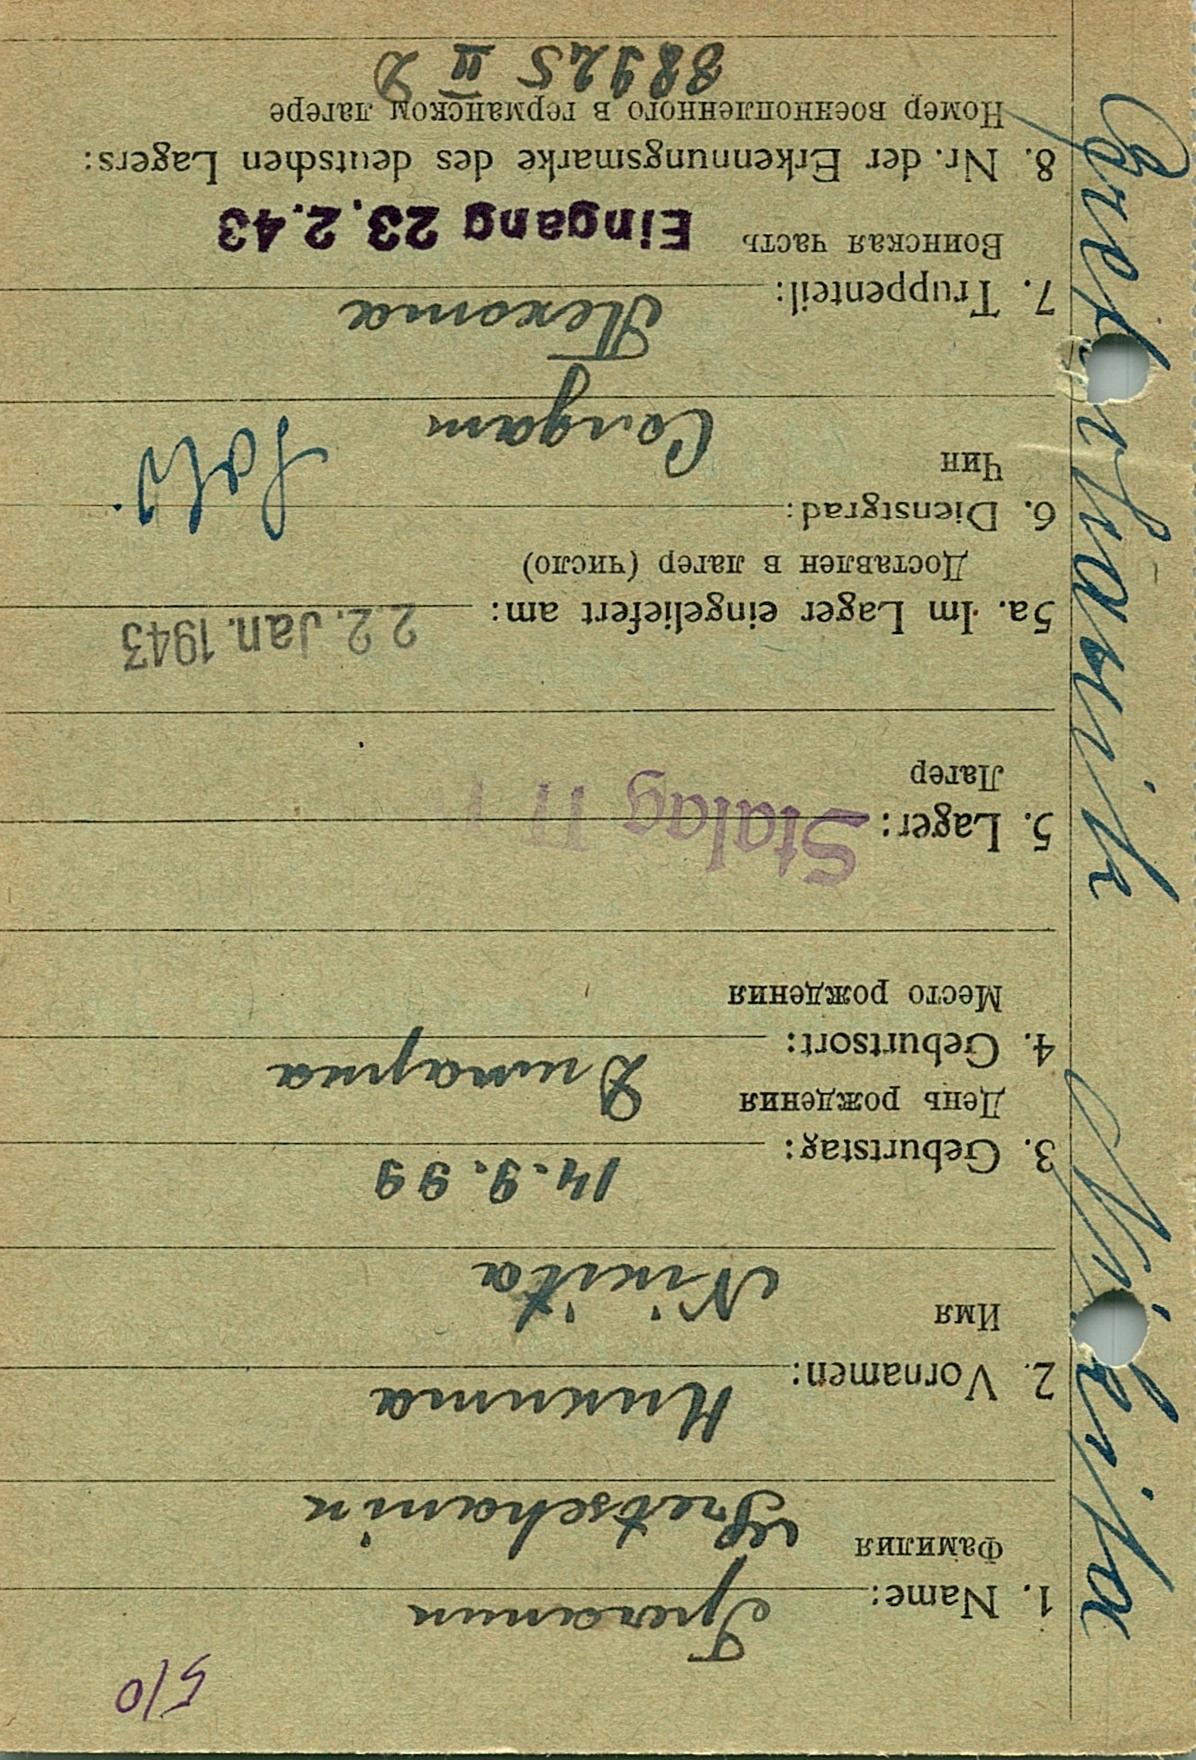 5/0
1. Name: Гречанин
Фамилия Gretschanin
2. Vornamen: Никита
Имя Nikita
3. Geburtstag: 14.9.99
День рождения
4. Geburtsort:
Место рождения
5. Lager: Stalag
Лагер
5a. Im Lager eingeliefert am: 22. Jan. 1943
Доставлен в лагер (число)
6. Dienstgrad: Sold.
Чин Солдат
Пехота
7. Truppenteil:
Воинская часть Eingang 23.2.43
8. Nr. der Erkennungsmarke des deutschen Lagers:
Номер военнопленного в германском лагере
88925 II D
Nikita